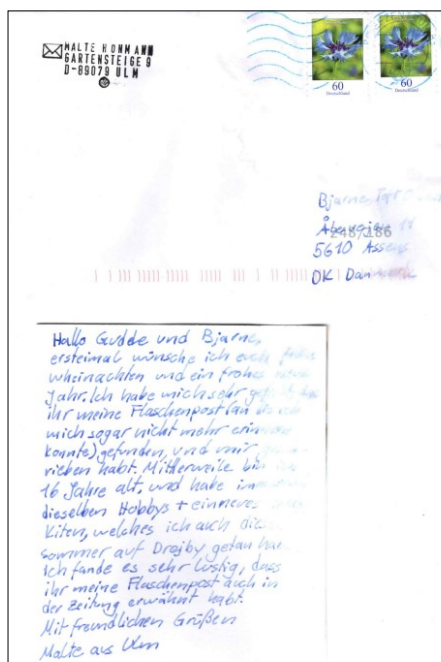 MALTE HONMANN
GARTENSTEIGE 9
D-89079 ULM
60
Deutschland
60
Deutschland
Bjarne
5610 Assens
DK Danmark
248/186
Hallo Gudde und Bjarne,
ersteimal wünsche ich euch frohe
wheinachten und ein frohes
Jahr. Ich habe mich sehr
ihr meine Flaschenpost (an die ich
mich sogar nicht mehr erinnern
konnte) gefunden, und mir
rieben habt. Mitlerweile bin ich
16 Jahre alt, und habe immer
dieselben Hobbys +
Kiten, welches ich auch
sommer auf Drejby getan
Ich fande es sehr lustig, dass
ihr meine Flaschenpost auch in
der Zeitung erwähnt habt.
Mit freundlichen Grüßen
Malte aus Ulm